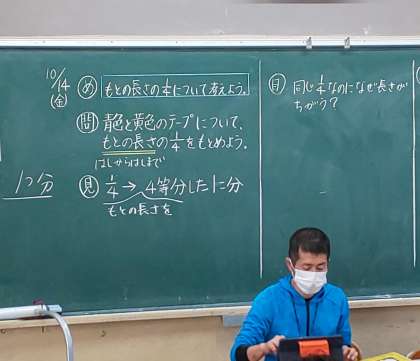 10/14
(金)
め もとの長さの1/4について考えよう。
問 青色と黄色のテープについて、
もとの長さの1/4をもとめよう。
はしからはしまで
見 1/4→4等分した1こ分
もとの長さを
1つ分
自 同じ1/4なのになぜ長さが
ちがう?